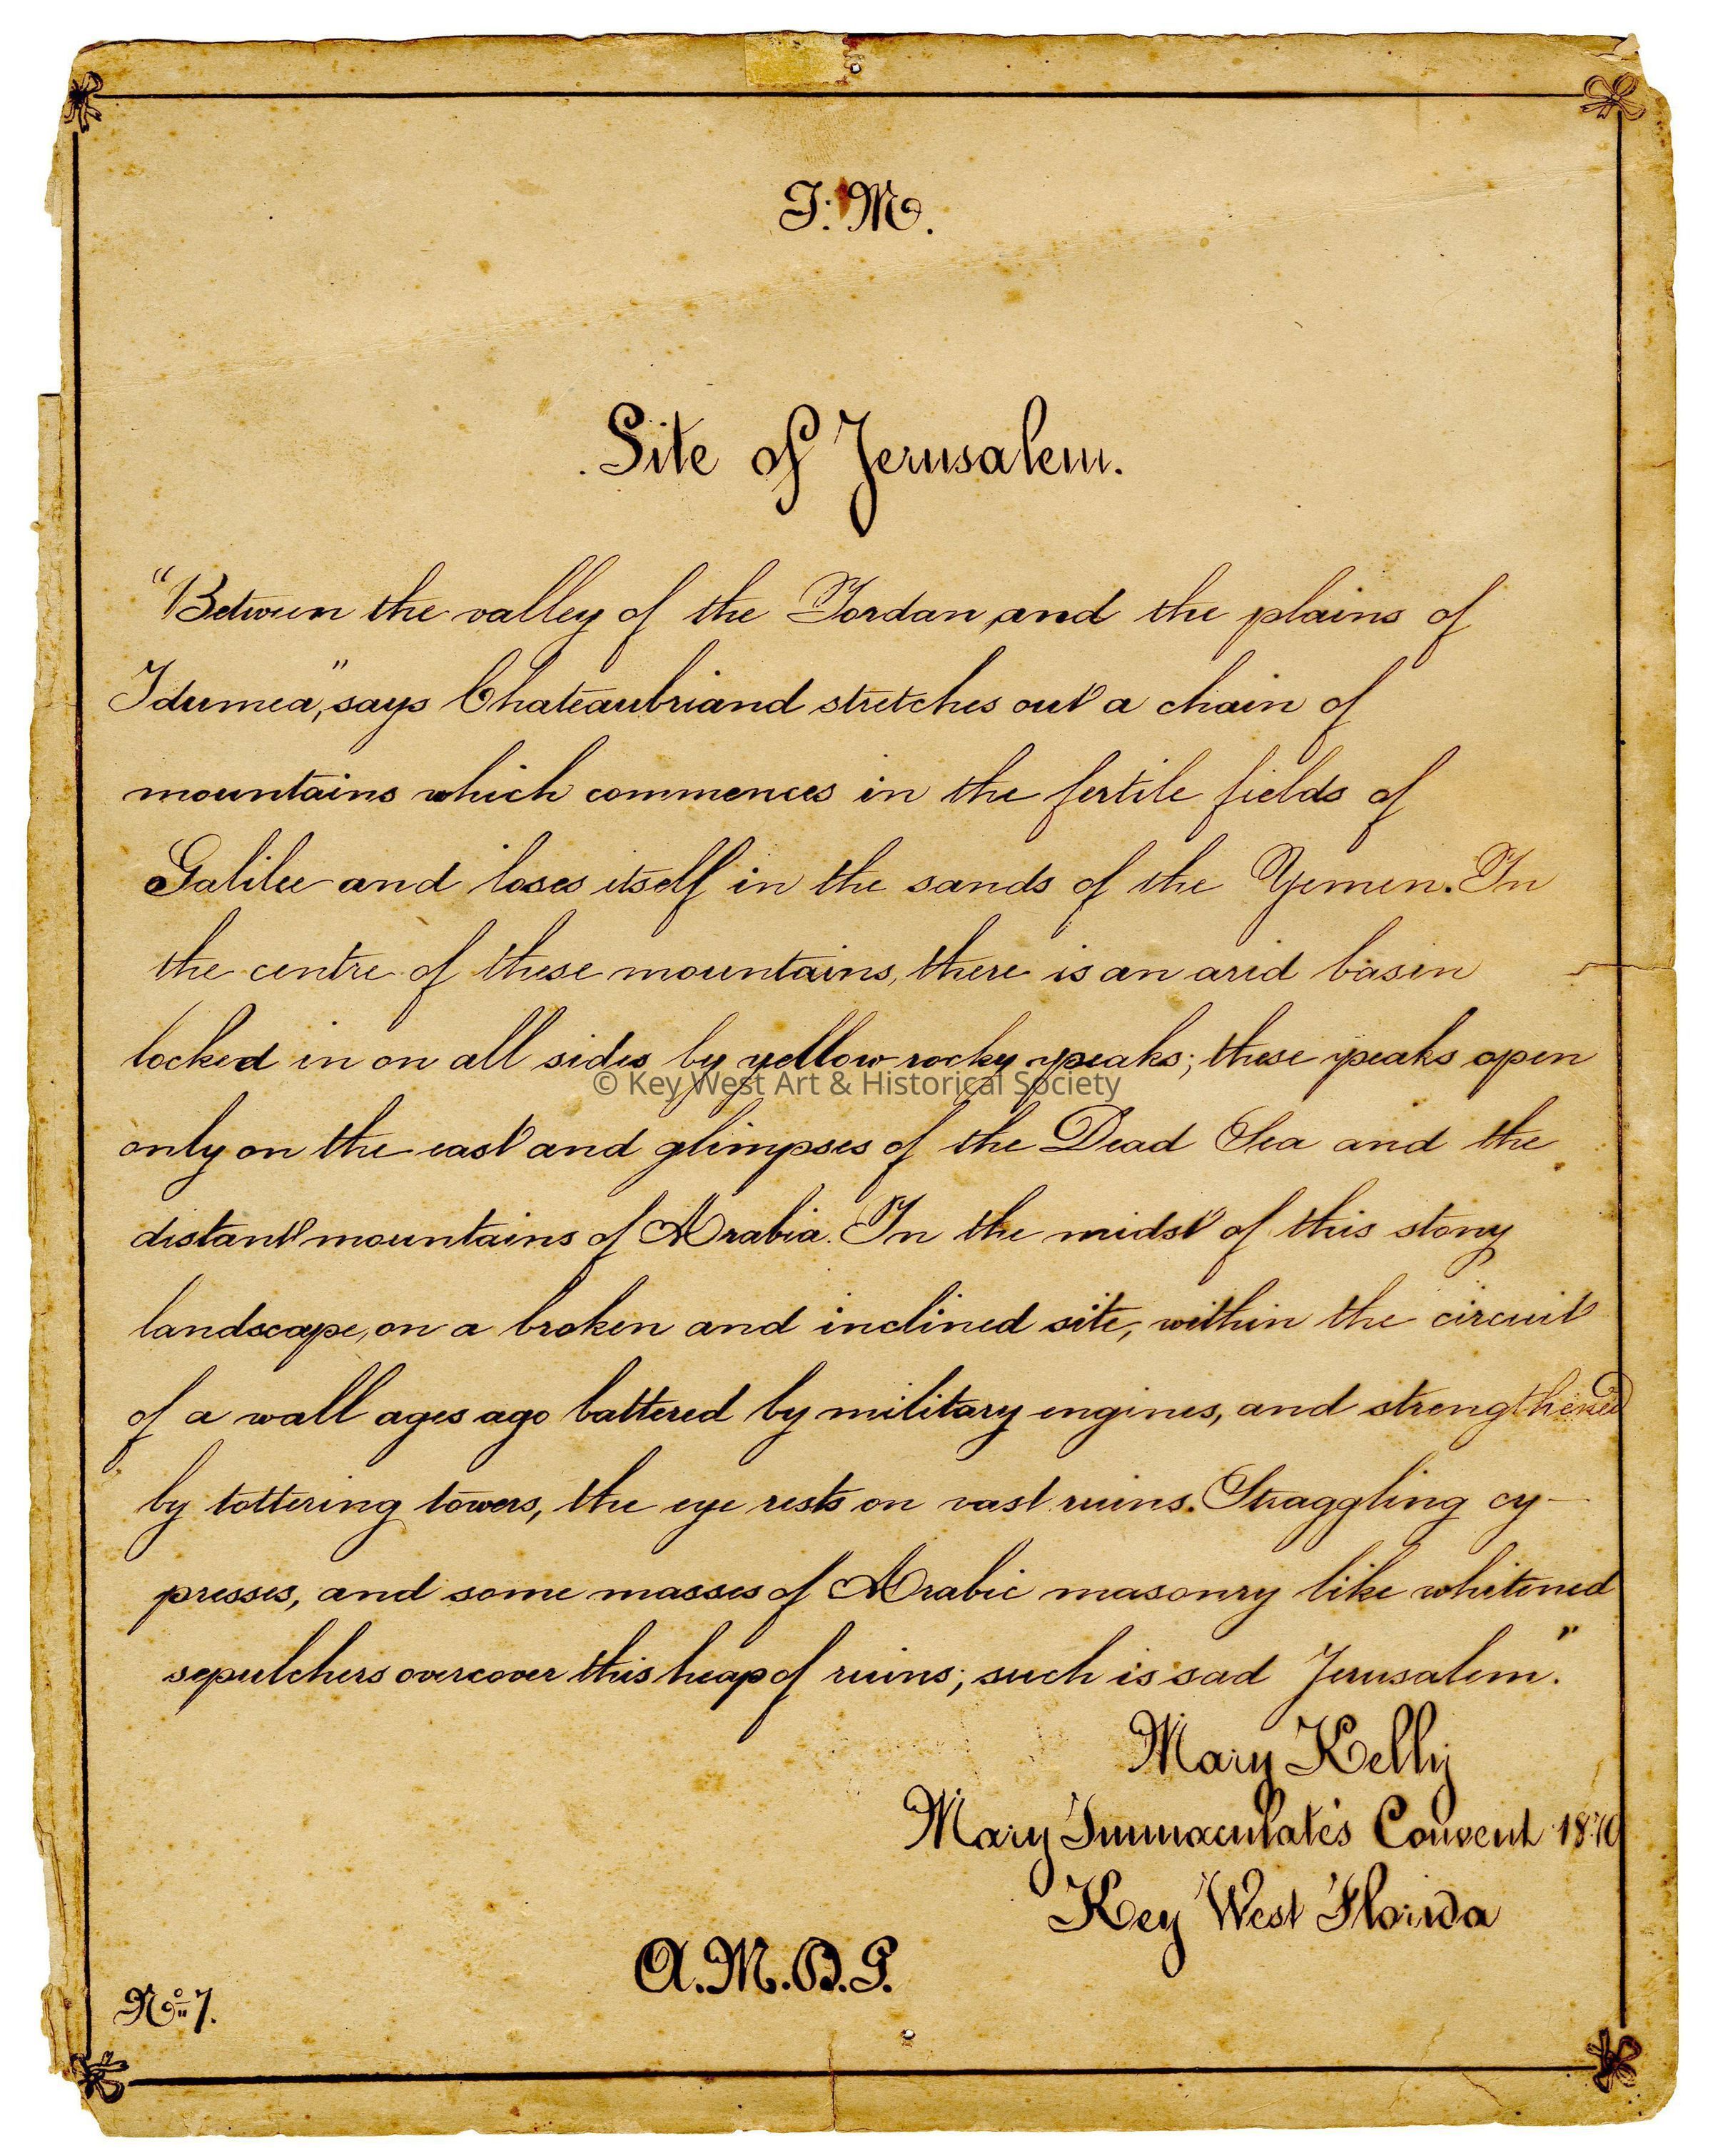 J. M.
Site of Jerusalem.
"Between the valley of the Jordan, and the plains of
Idumea," says Chateaubriand stretches out a chain of
mountains which commences in the fertile fields of
Galilee and loses itself in the sands of the Yemen. In
the centre of these mountains, there is an arid basin
locked in on all sides by yellow rocky peaks; these peaks open
© Key West Art & Historical Society
only on the east and glimpses of the Dead Sea and the
distant mountains of Arabia. In the midst of this stony
landscape, on a broken and inclined site, within the circuit
of a wall ages ago battered by military engines, and strengthened
by tottering towers, the eye rests on vast ruins. Straggling cy-
presses, and some masses of Arabic masonry like whitened
sepulchers overcover this heap of ruins; such is sad Jerusalem."
Mary Kelly
Mary Immaculate's Convent 1870
Key West Florida
A.M.D.G.
No. 7.